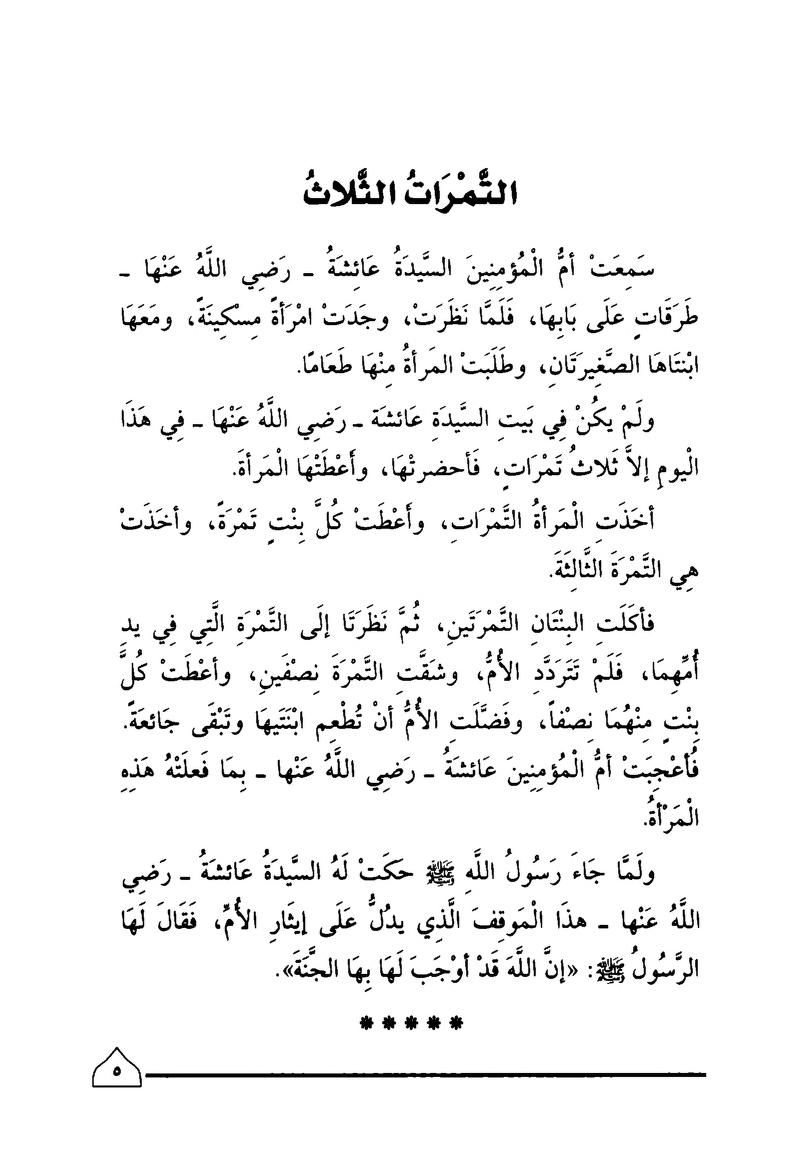 التَّمْرَاتُ الثَّلاثُ
سَمِعَتْ أمُّ الْمُؤمِنِينَ السَّيِّدَةُ عَائِشَةُ ـ رَضِي اللَّهُ عَنْهَا ـ
طَرَقَاتٍ عَلَى بَابِهَا، فَلَمَّا نَظَرَتْ، وجَدَتْ امْرَأةً مِسْكِينَةً، ومَعَهَا
ابْنتَاهَا الصَّغِيرَتَانِ، وطَلَبَتْ المَرأةُ مِنْهَا طَعَامًا.
ولَمْ يكُنْ فِي بَيتِ السَّيدَةِ عَائشَة ـ رَضِي اللَّهُ عَنْهَا ـ فِي هَذَا
الْيومِ إلاَّ ثَلاثُ تَمْرَاتٍ، فَأحضرتْهَا، وأَعْطَتْهَا الْمَرأةَ.
أخَذَتِ الْمَرأةُ التَّمْرَاتِ، وأَعْطَتْ كُلَّ بِنْتٍ تَمْرَةً، وأخَذَتْ
هِي التَّمْرَةَ الثَّالِثَةَ.
فأكَلَتِ البِنْتَان التَّمْرَتَينِ، ثُمَّ نَظَرَتَا إلَى التَّمْرَةِ الَّتِي فِي يدِ
أُمِّهِمَا، فَلَمْ تَتَردَّدِ الأمُّ، وشَقَّتِ التَّمْرَةَ نِصْفَينِ، وأعْطَتْ كُلَّ
بِنْتٍ مِنْهُمَا نِصْفاً، وفَضَّلَتِ الأُمُّ أنْ تُطْعِم ابْنَتَيهَا وتَبْقَى جَائعَةً.
فُأعْجِبَتْ أمُّ الْمُؤمِنِينَ عَائشَةُ ـ رَضِي اللَّهُ عَنْها ـ بِمَا فَعلَتْهُ هَذِهِ
الْمَرْأةُ.
ولَمَّا جَاءَ رَسُولُ اللَّهِ ﷺ حكَتْ لَهُ السَّيِّدَةُ عَائشَةُ ـ رَضِي
اللَّهُ عَنْها ـ هذَا الْمَوقِفَ الَّذِي يدُلُّ عَلَى إيثَارِ الأُمِّ، فَقَالَ لَهَا
الرَّسُولُ ﷺ: «إنَّ اللَّهَ قَدْ أوْجَبَ لَهَا بِهَا الجنَّةَ».
*****
٥